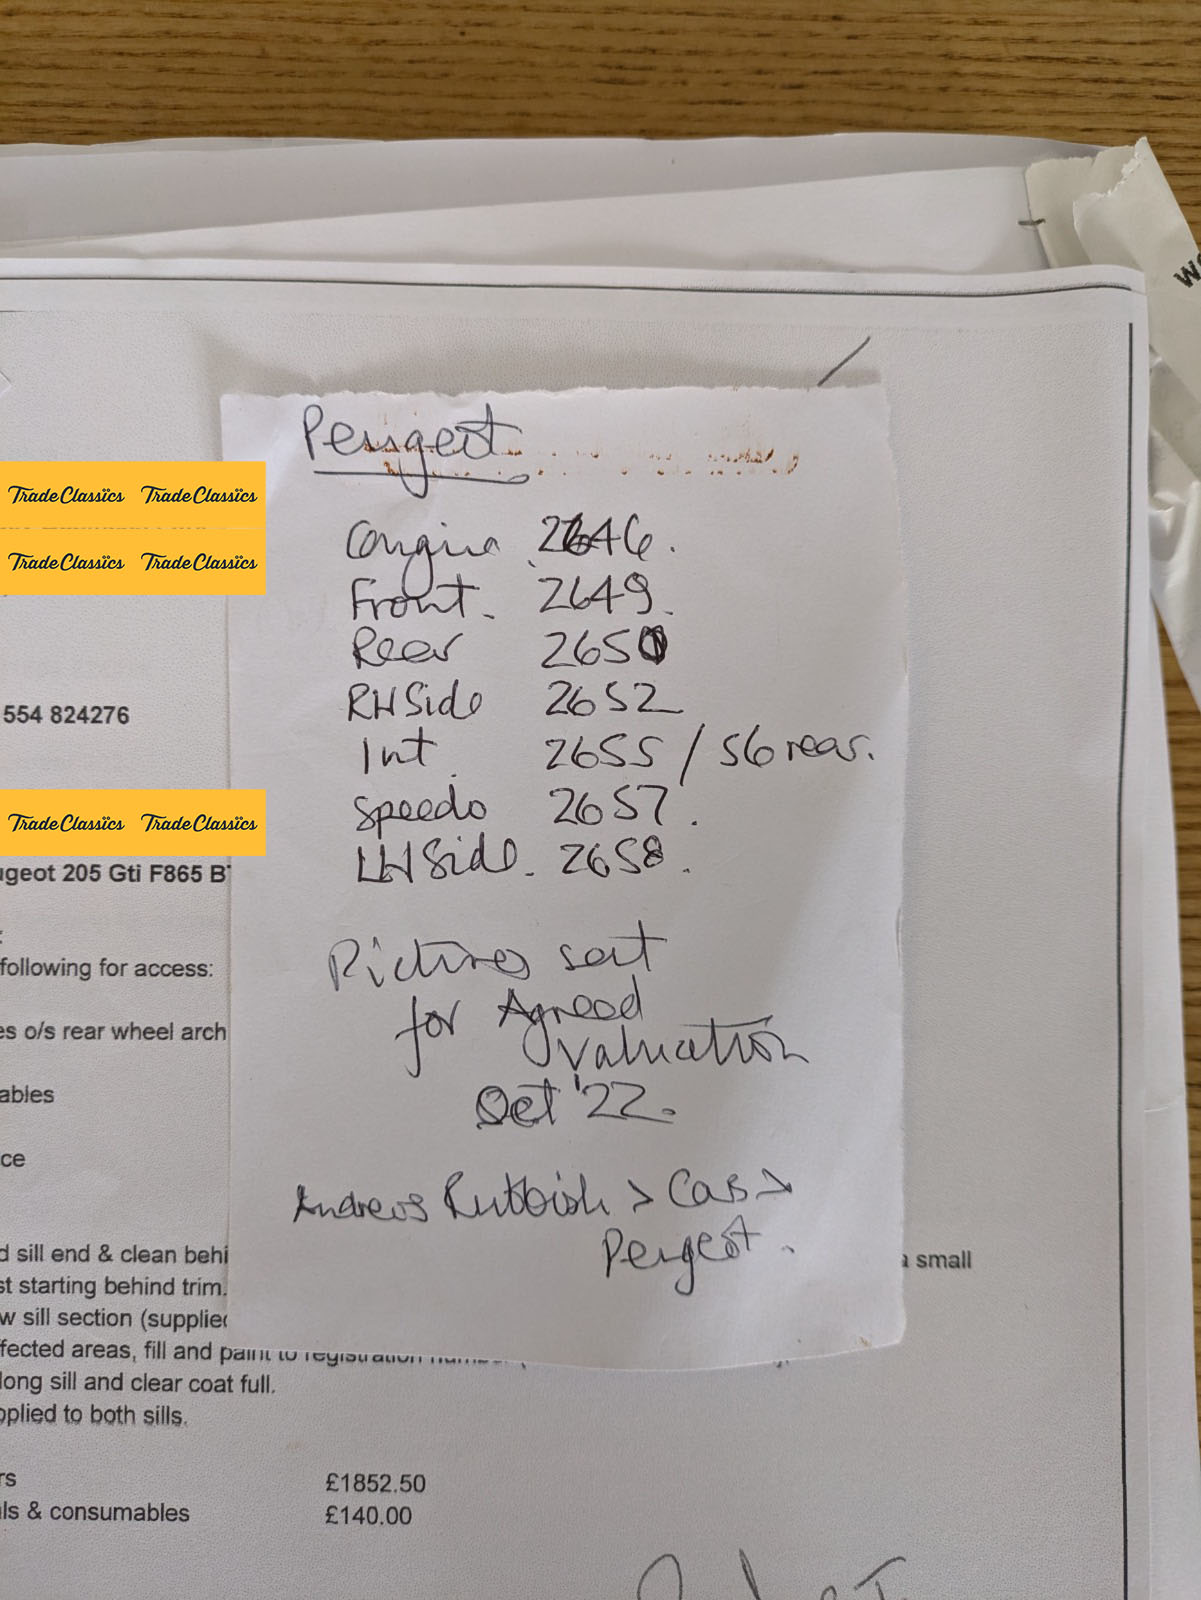 Wo
Peugeot
TradeClassics TradeClassics
Engine 2646.
TradeClassics TradeClassics
Front. 2649.
Rear 2650
RH Side 2652
554 824276
Int. 2655 / 56 rear.
Speedo 2657.
TradeClassics TradeClassics
LH Side. 2658.
ugeot 205 Gti F865 B
Pictures sent
following for access:
for Agreed
es o/s rear wheel arch
Valuation
ables
Oct '22.
ce
Andrews Rubbish > Cars >
Peugeot.
d sill end & clean behi
a small
st starting behind trim.
w sill section (supplie
ffected areas, fill and paint to registration number
long sill and clear coat full.
pplied to both sills.
rs £1852.50
ls & consumables £140.00